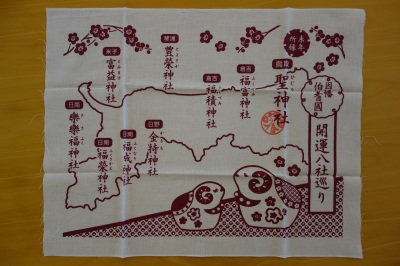 因幡
伯耆國
開運八社巡り
鳥取
聖神社
倉吉
福富神社
倉吉
福積神社
琴浦
豊榮神社
米子
富益神社
日野
金持神社
日南
福成神社
日南
福榮神社
日南
樂樂福神社